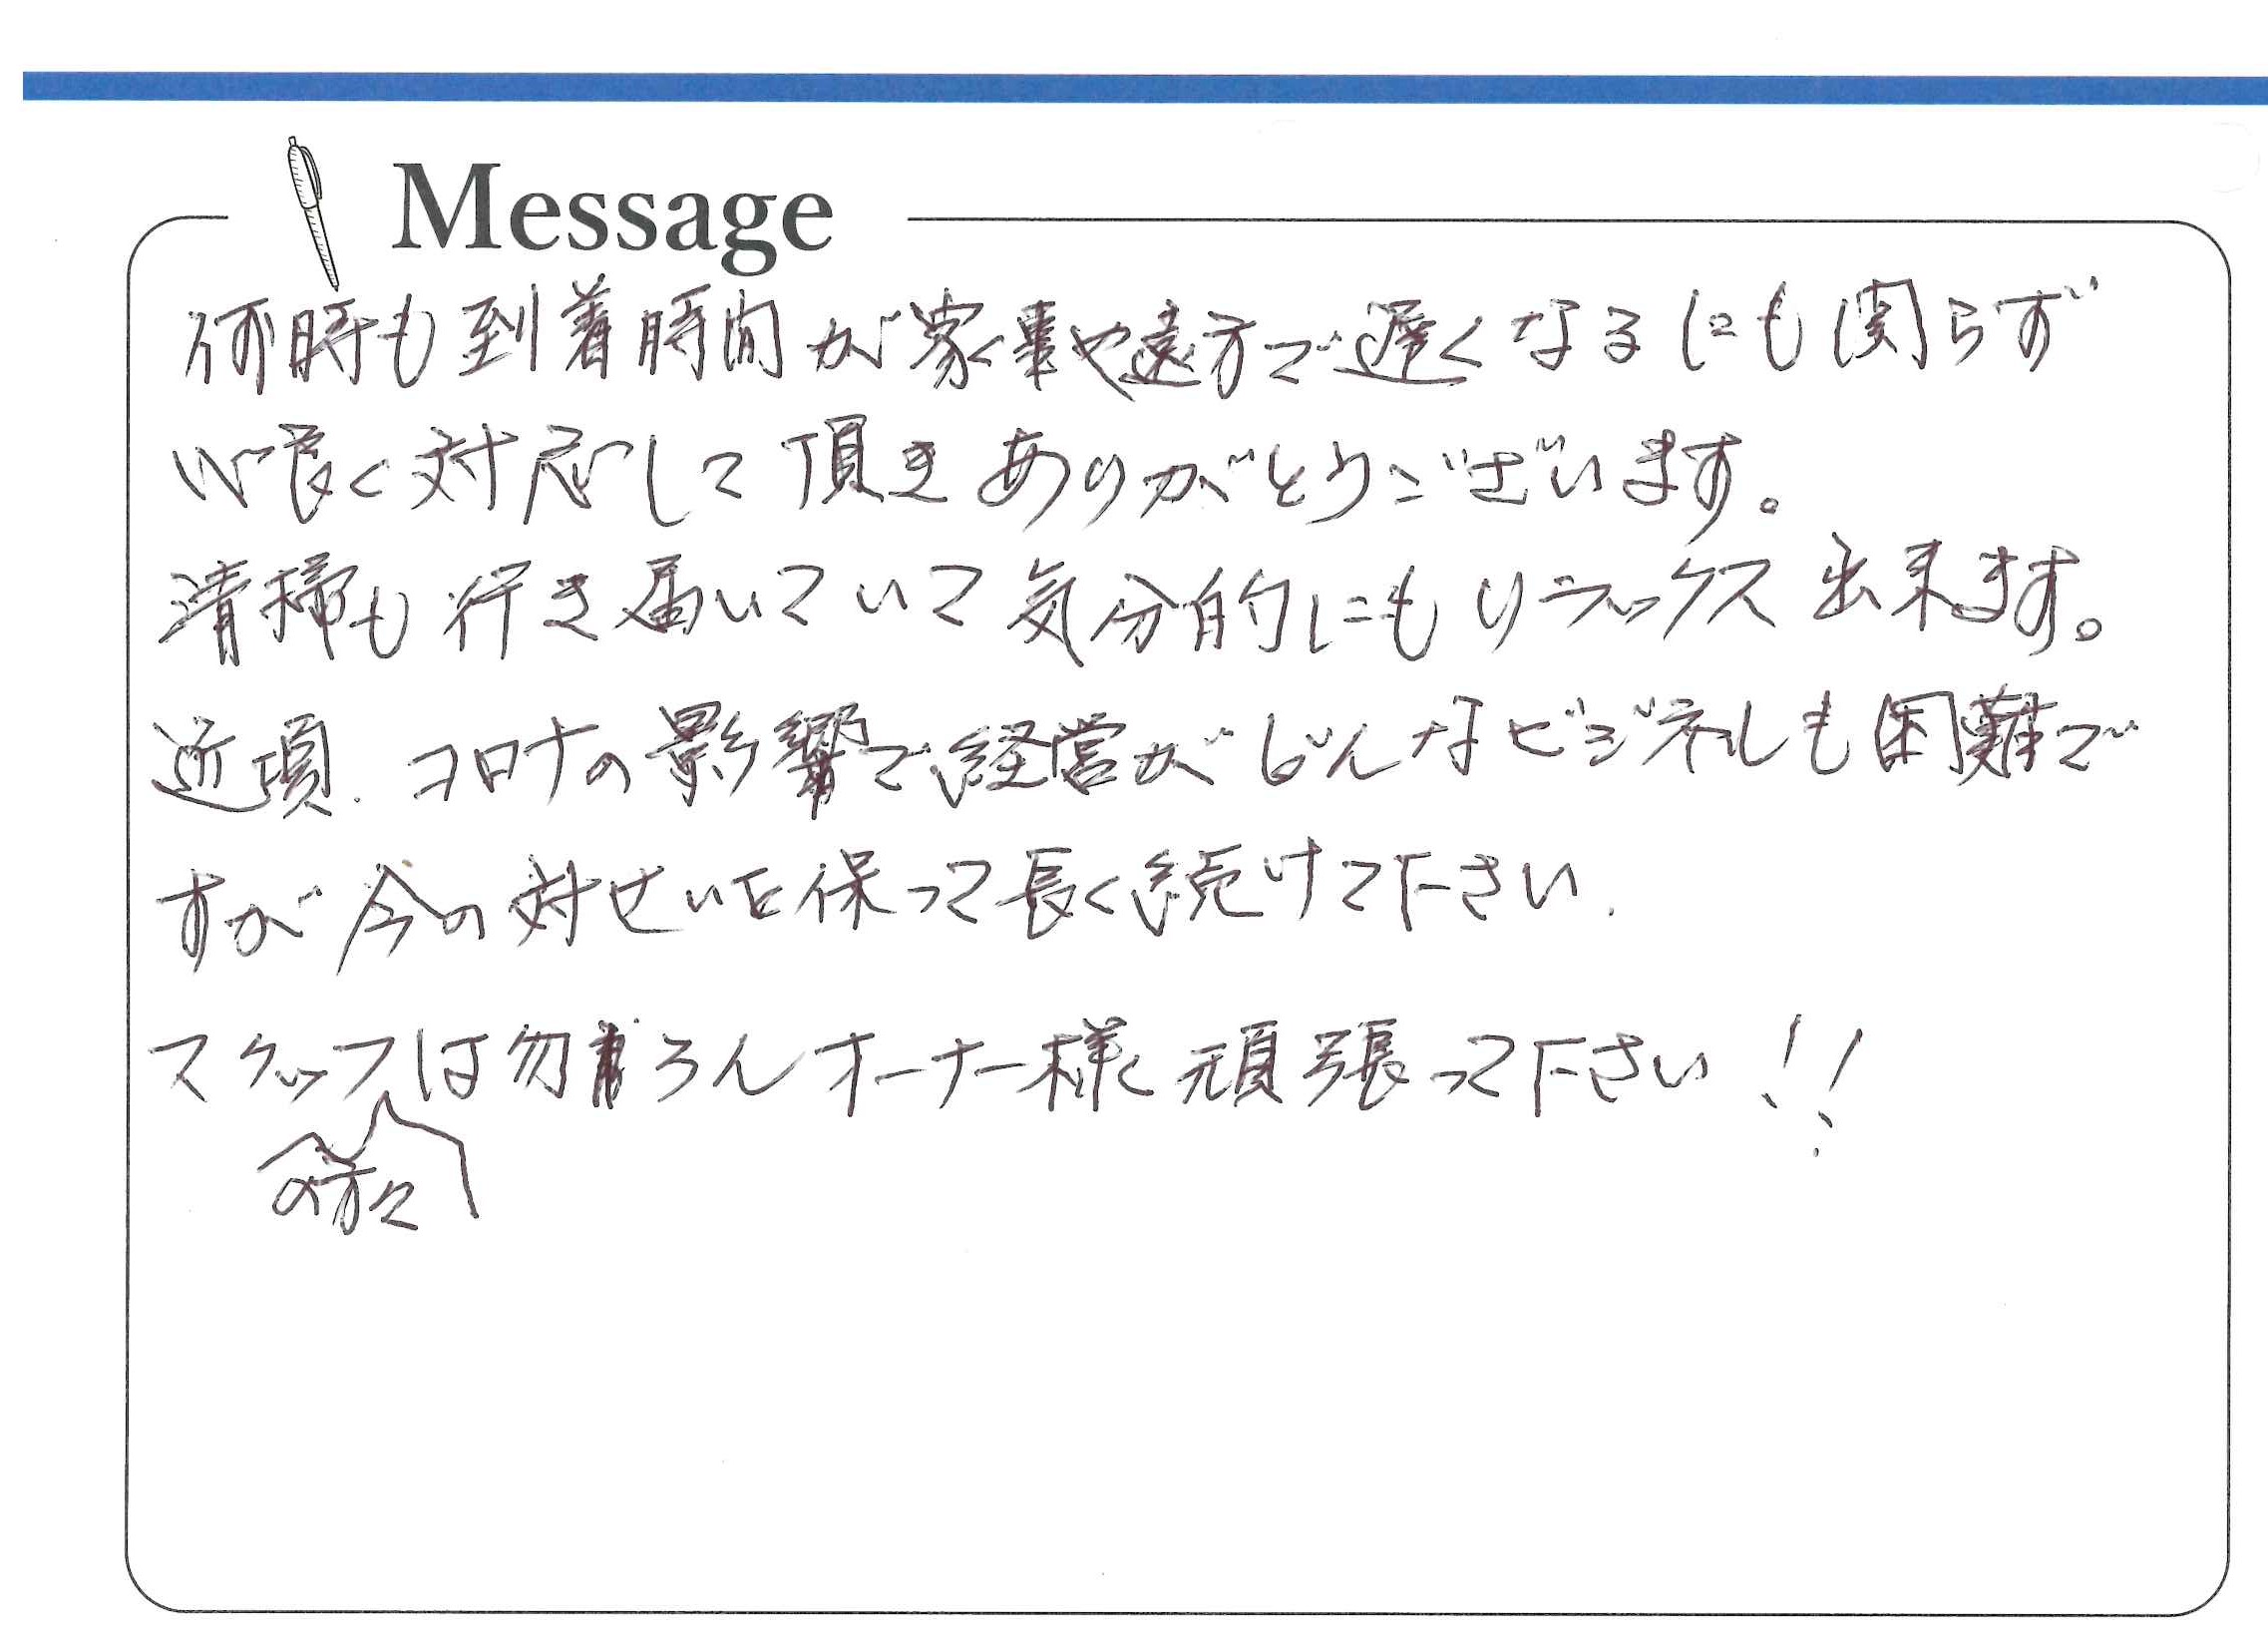 Message
何時も到着時間が家事や遠方で遅くなるにも関らず
心良く対応して頂きありがとうございます。
清掃も行き届いていて気分的にもリラックス出来ます。
近頃、コロナの影響で経営がどんなビジネスも困難で
すが今の対せいを保って長く続けて下さい、
スタッフは勿ろんオーナー様も頑張って下さい!!
の方々